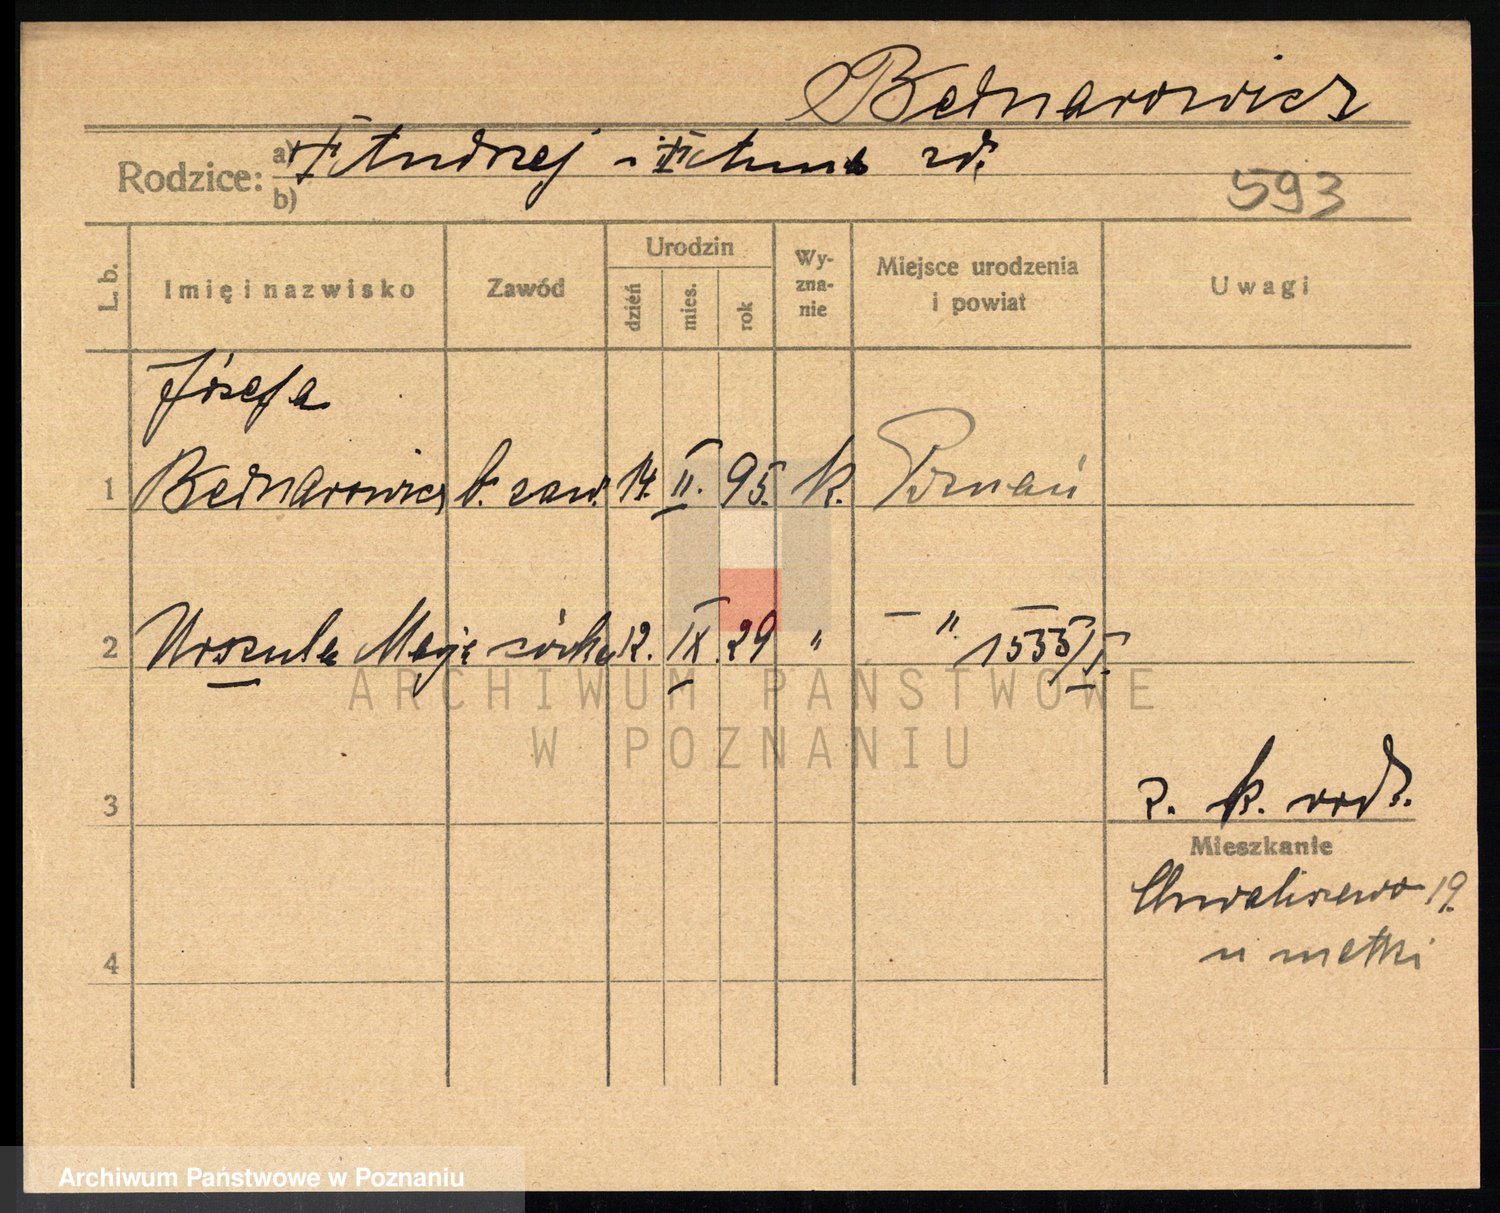 Bednarowicz
Rodzice: a) Andrzej i Anna zd.
b)
593
L. b.
Imię i nazwisko
Zawód
Urodzin
dzień
mies.
rok
Wy-
zna-
nie
Miejsce urodzenia
i powiat
Uwagi
Józefa
1 Bednarowicz b. zaw. 14. II. 95. k. Poznań
2 Urszula Maja córka 12. IX. 29 " — " 1535/I.
ARCHIWUM PAŃSTWOWE
W POZNANIU
3
k.
Mieszkanie
Chwaliszewo 19.
u matki
4
Archiwum Państwowe w Poznaniu